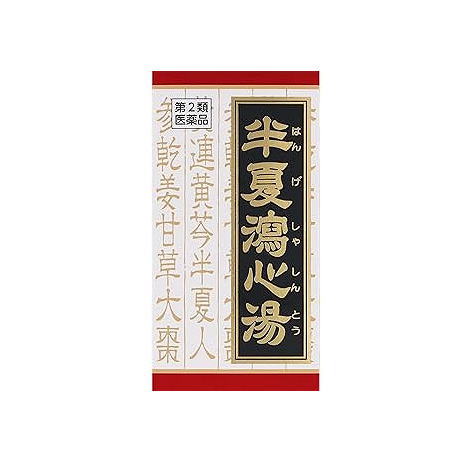 第2類
医薬品
半夏瀉心湯
はんげしゃしんとう
連黄芩半夏人
参乾姜甘草大棗